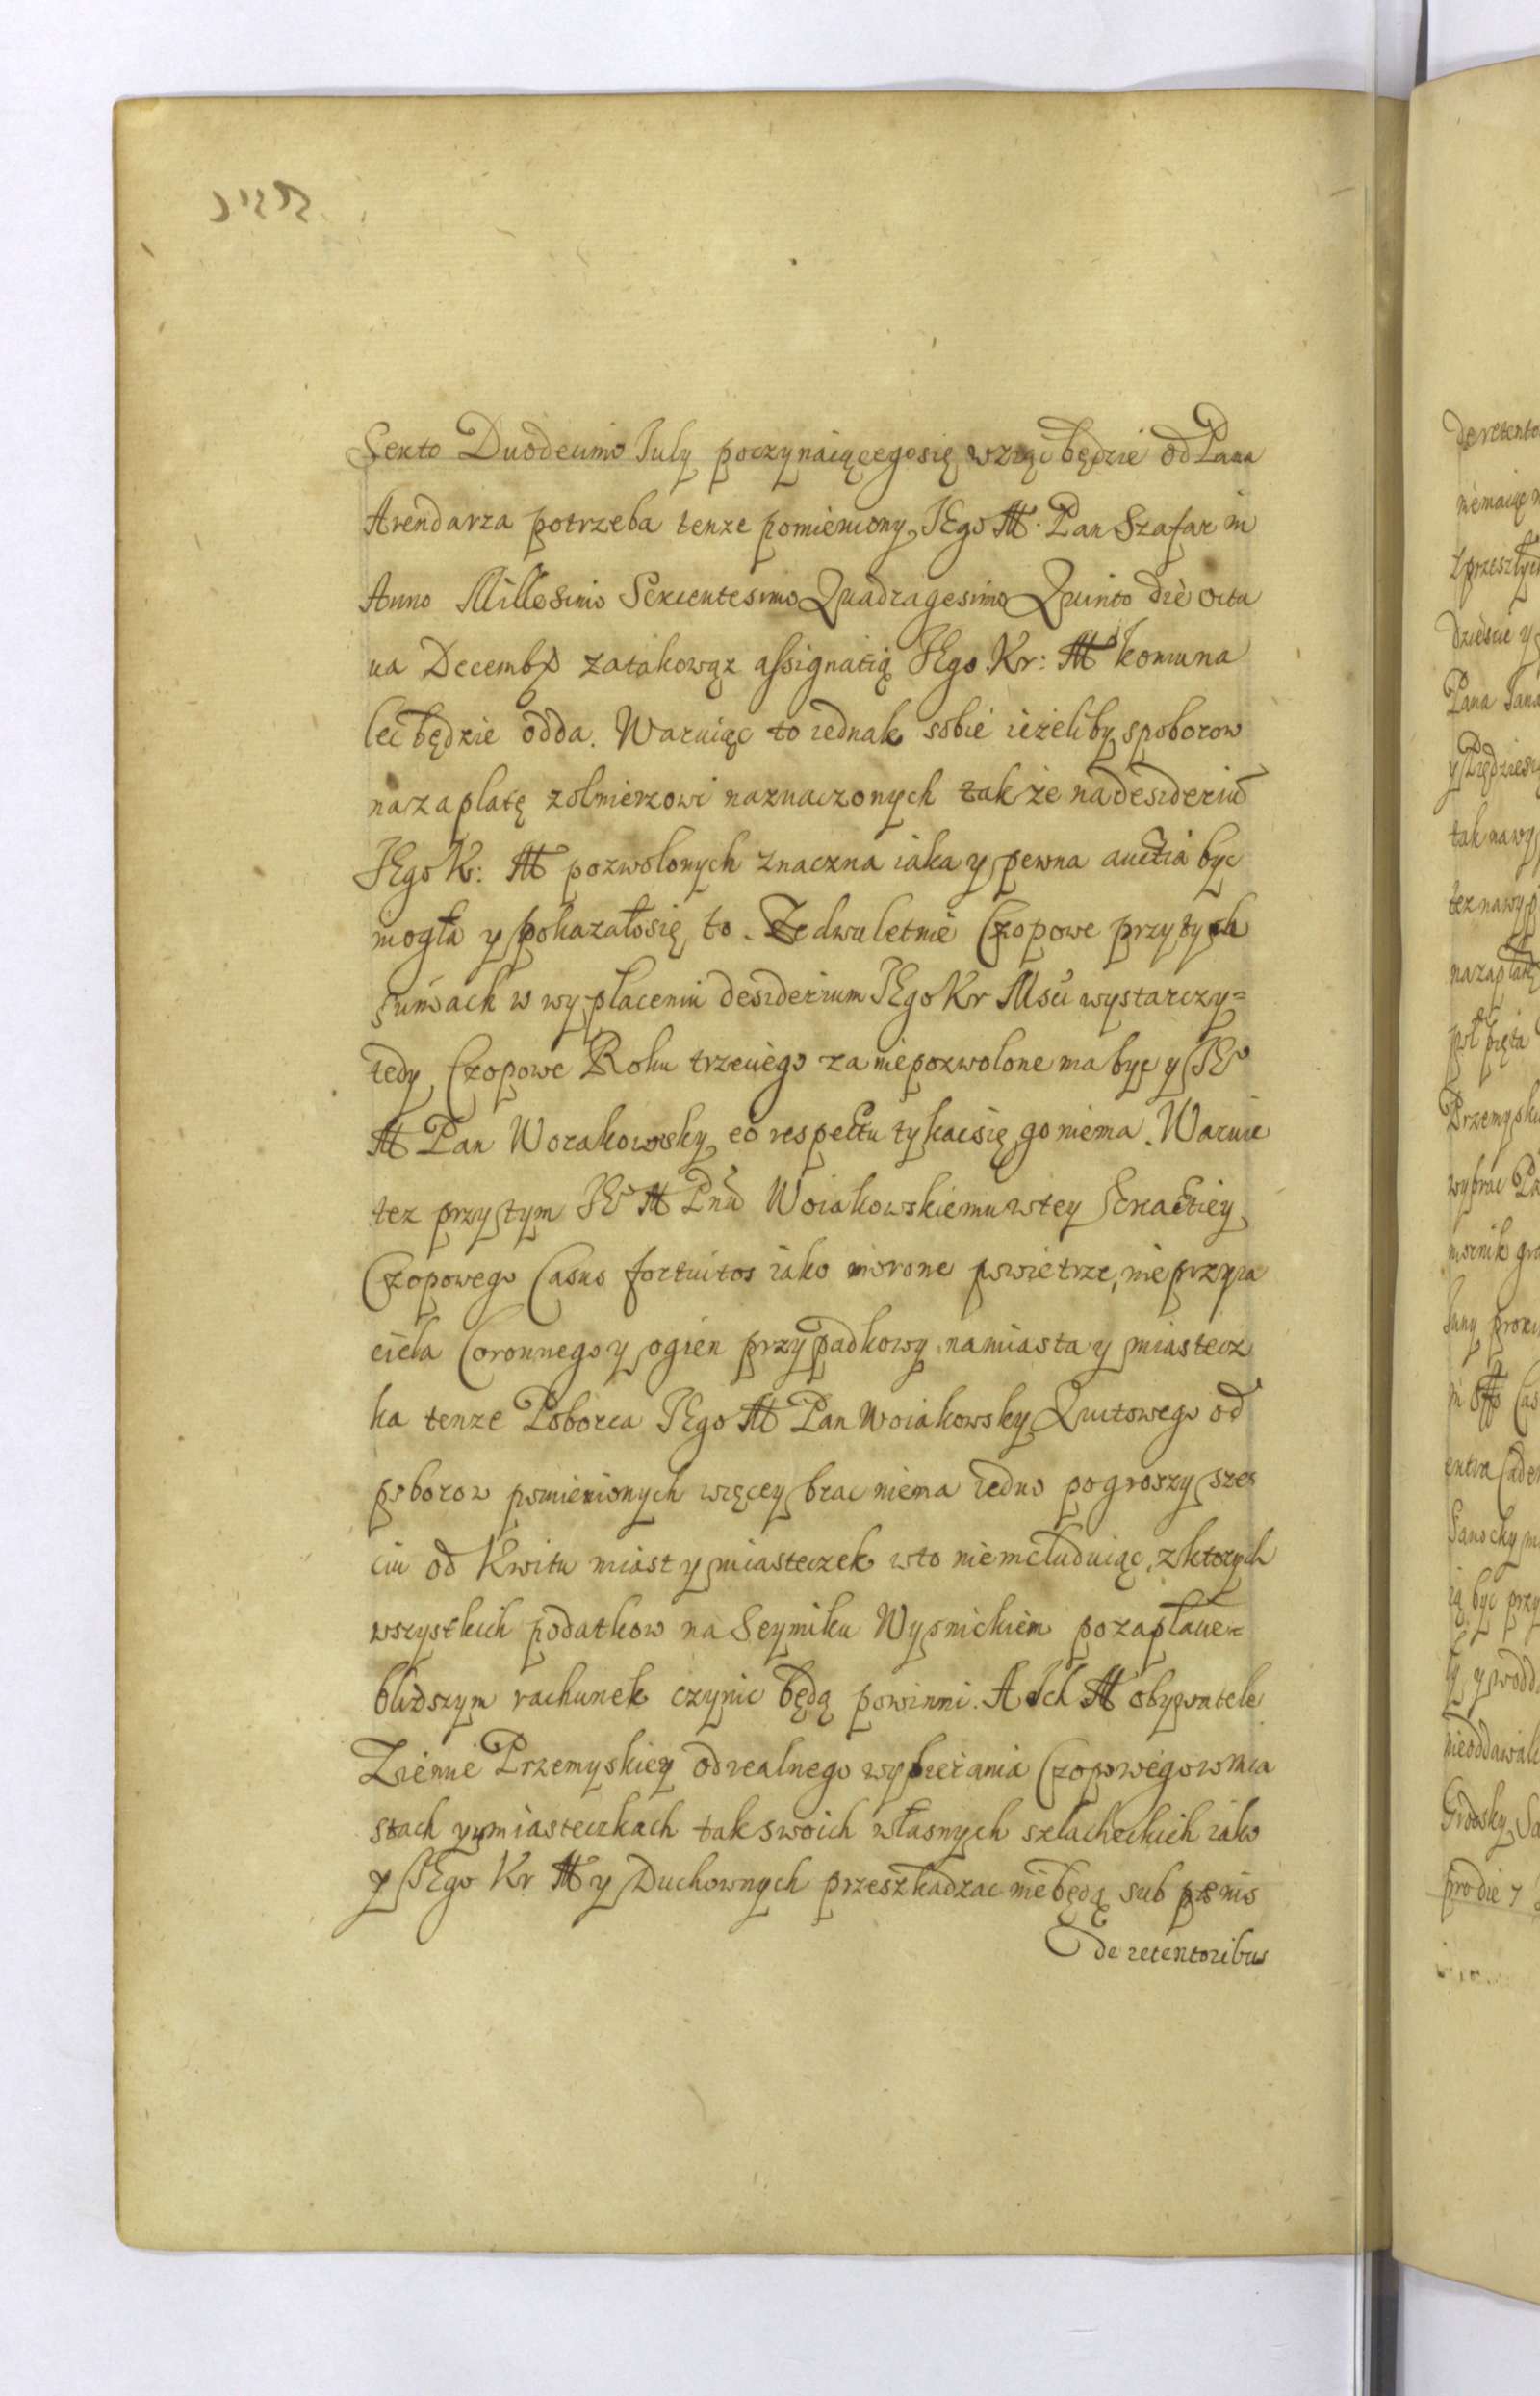 Sexto Duodecimo July poczynaiącego się wziąc będzie od Pana
Arendarza potrzeba tenze pomieniony JEgo M. Pan Szafar in
Anno Millesimo Sexcentesimo Quadragesimo Quinto die octa
va Decembr zatakowąz assignatią JEgo Kr: M komu na
lec będzie odda. Waruiąc to iednak sobie ieżeliby spoborow
na zapłatę zołnierzowi naznaczonych także na desideriũ
JEgo K: M pozwolonych znaczna iaka y pewna auctia byc
mogła y pokazało się to. Ze dwuletnie Czopowe przy tych
sumach w wypłaceniu desiderium JEgo Kr Msci wystarczy=
tedy Czopowe Roku trzeciego za niepozwolone ma byc y JEo
M Pan Woiakowsky eo respectu tykac się go niema. Waruie
tez przy tym JEo M Pnu Woiakowskiemu w tey Exactiey
Czopowego Casus fortuitos iako morowe powietrze, nieprzyia
ciela Coronnego y ogien przypadkowy na miasta y miastecz
ka tenze Poborca JEgo M Pan Woiakowsky Quitowego od
poborow pomienionych więcey brac niema iedno po groszy szes
ciu od Kwitu miast y miasteczek w to nie includuiąc, z ktorych
wszystkich podatkow na Seymiku Wysnickiem po zapłacie
blizszym rachunek czynic będą powinni. A Ich M obywatele
Ziemie Przemyskiey od realnego wybierania Czopowego w mia
stach y miasteczkach tak swoich własnych szlacheckich iako
y JEgo Kr M y Duchownych przeszkadzac nie będą sub pœnis
de retentoribus
de retento
niemaiąc
z przeszłych
dziescie y
Pana Jana
tak na wy
tez na wyp
na zapłatę
Przemysk
wybrac Pa
Sanocky
ią byc przy
nieoddawal
Grodsky Sa
pro die 7